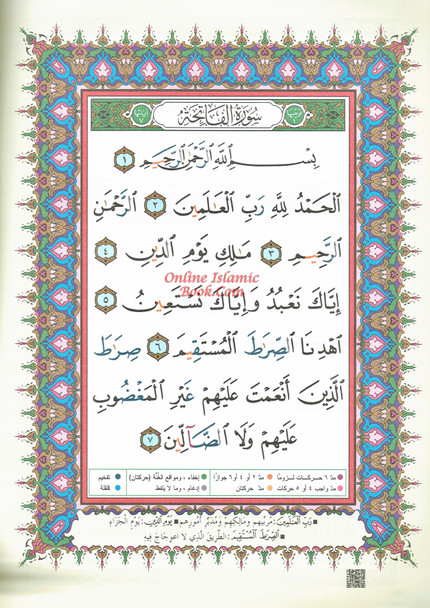 سُورَةُ الفَاتِحَةِ
بِسْمِ اللَّهِ الرَّحْمَٰنِ الرَّحِيمِ ١
الْحَمْدُ لِلَّهِ رَبِّ الْعَالَمِينَ ٢ الرَّحْمَٰنِ
الرَّحِيمِ ٣ مَالِكِ يَوْمِ الدِّينِ ٤
Online Islamic
Book.Com
إِيَّاكَ نَعْبُدُ وَإِيَّاكَ نَسْتَعِينُ ٥
اهْدِنَا الصِّرَاطَ الْمُسْتَقِيمَ ٦ صِرَاطَ
الَّذِينَ أَنْعَمْتَ عَلَيْهِمْ غَيْرِ الْمَغْضُوبِ
عَلَيْهِمْ وَلَا الضَّالِّينَ ٧
مدّ ٦ حركات لزومًا مدّ ٢ أو ٤ أو ٦ جوازًا إخفاء، ومواقع الغُنَّة (حركتان) تفخيم
مدّ واجب ٤ أو ٥ حركات مدّ حركتان إدغام، وما لا يلفظ قلقلة
رَبِّ الْعَالَمِينَ: مُرَبِّيهِم وَمَالِكِهِم وَمُدَبِّرِ أُمُورِهِم يَوْمِ الدِّينِ: يَوْمِ الْجَزَاءِ
الصِّرَاطَ الْمُسْتَقِيمَ: الطَّرِيقَ الَّذِي لَا اعْوِجَاجَ فِيهِ